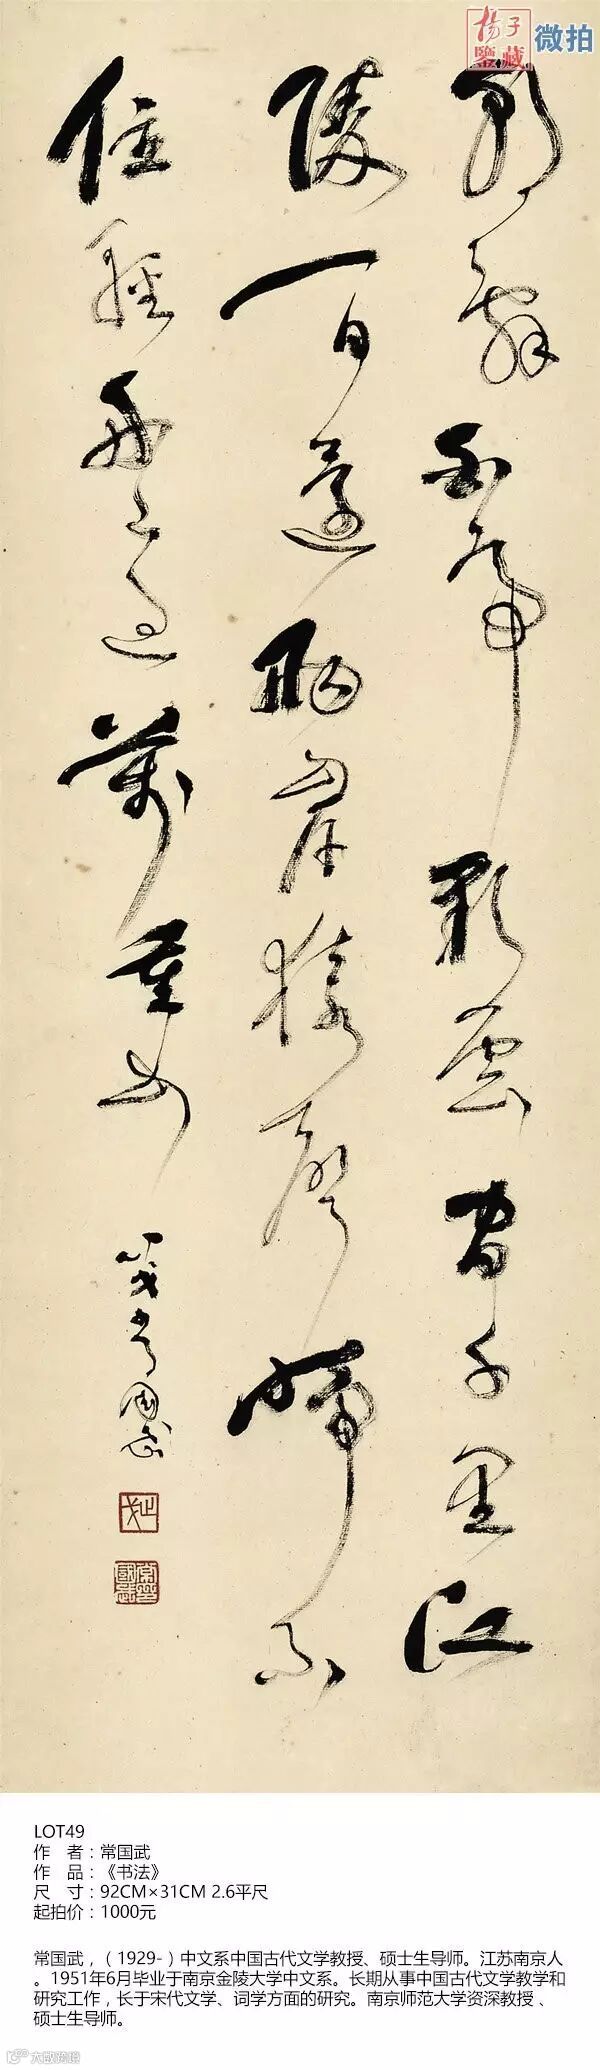 揚子
鑒藏
微拍
朝辭白帝彩雲間千里江
陵一日還兩岸猿聲啼不
住輕舟已過萬重山
常國武
止戈
LOT49
作 者：常国武
作 品：《书法》
尺 寸：92CM×31CM 2.6平尺
起拍价：1000元
常国武，（1929-）中文系中国古代文学教授、硕士生导师。江苏南京人
。1951年6月毕业于南京金陵大学中文系。长期从事中国古代文学教学和
研究工作，长于宋代文学、词学方面的研究。南京师范大学资深教授 、
硕士生导师。
大数跨境